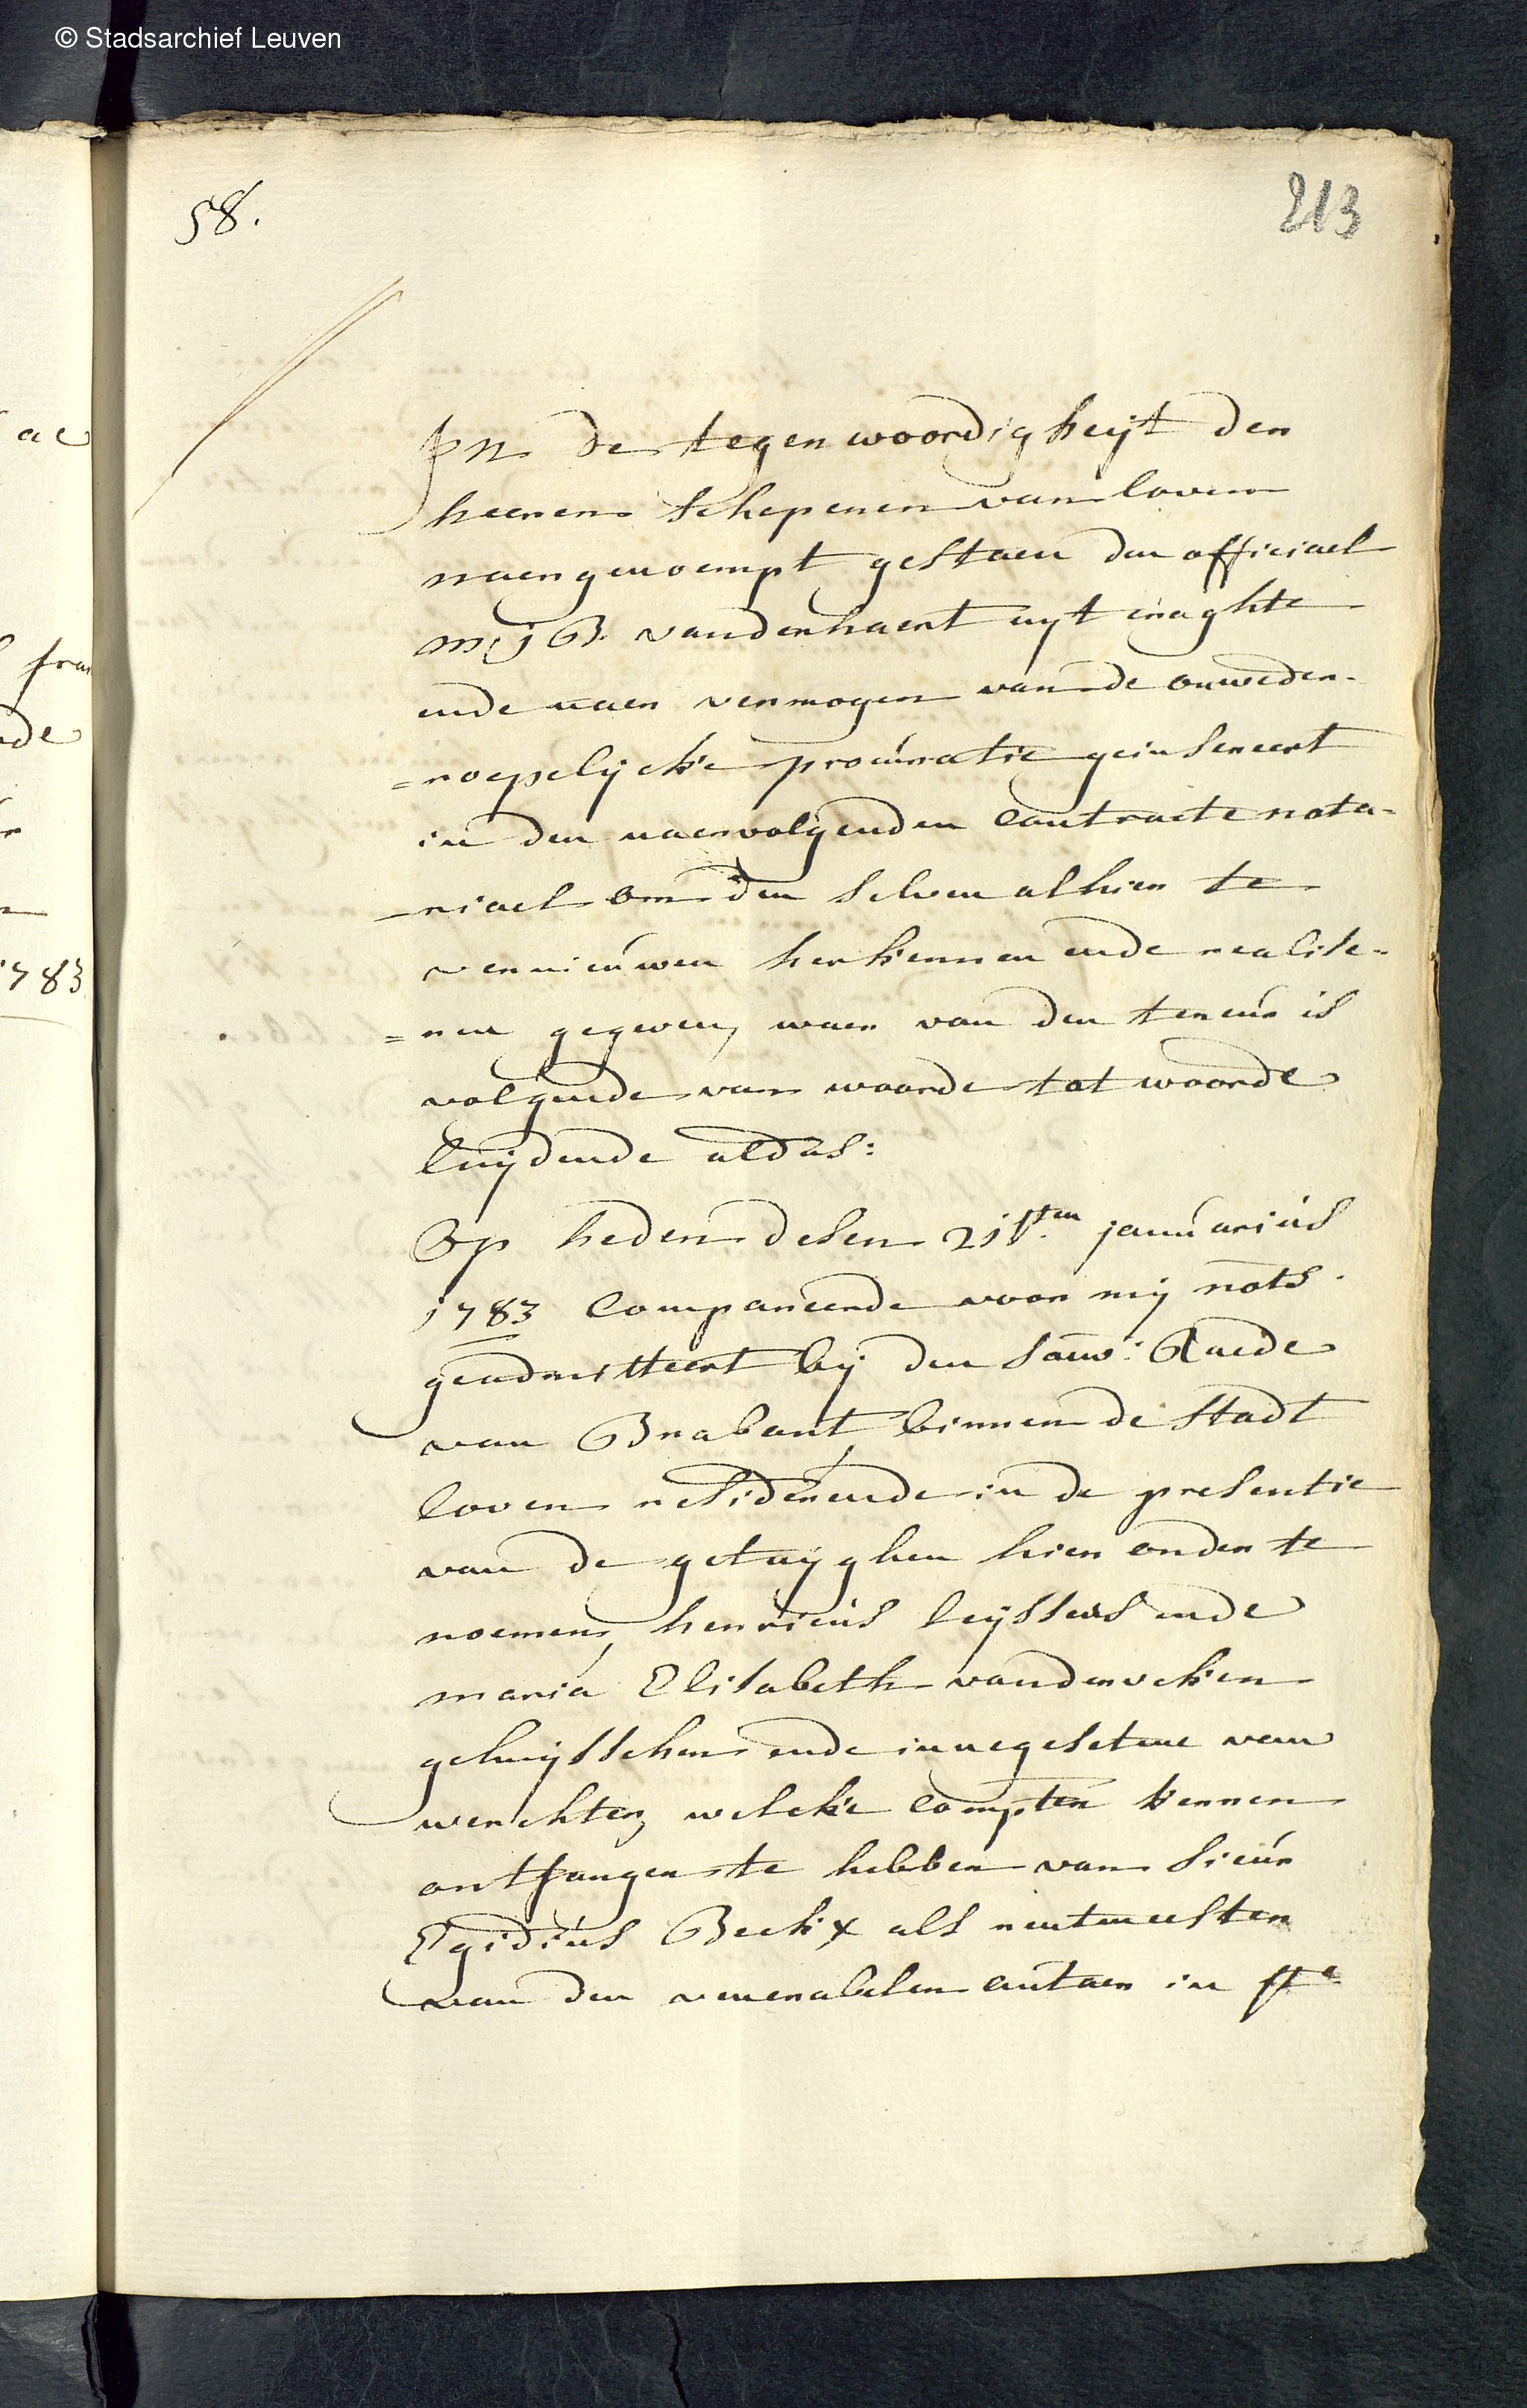 © Stadsarchief Leuven
58.
213
In de tegenwoordigheijt der
heeren schepenen van loven
naergenoempt gestaen den officiael
m: j B. vanderhaert uyt craghte
ende naer vermogen van de onweder-
=roepelijcke procuratie geinsereert
in den naervolgenden contracte nota-
-riael om den selven alhier te
vernieuwen herkennen ende realise-
=ren gegeven, waer van den teneur is
volgende van woorde tot woorde
luijdende aldus:
Op heden desen 21sten januarius
1783 Comparerende voor mij nots.
geadmitteert bij den souv: Raede
van Brabant, binnen de stadt
loven residerende in de presentie
van de getuijghen hier onder te
noemen, henricus leijssens ende
maria Elisabeth vanderveken
gehuijsschen ende innegesetene van
werchter, welcke compten kennen
ontfangen te hebben van sieur
Egidius Beckx als rentmeester
van den venerabelen autaer in ste
ae
fra
de
1783